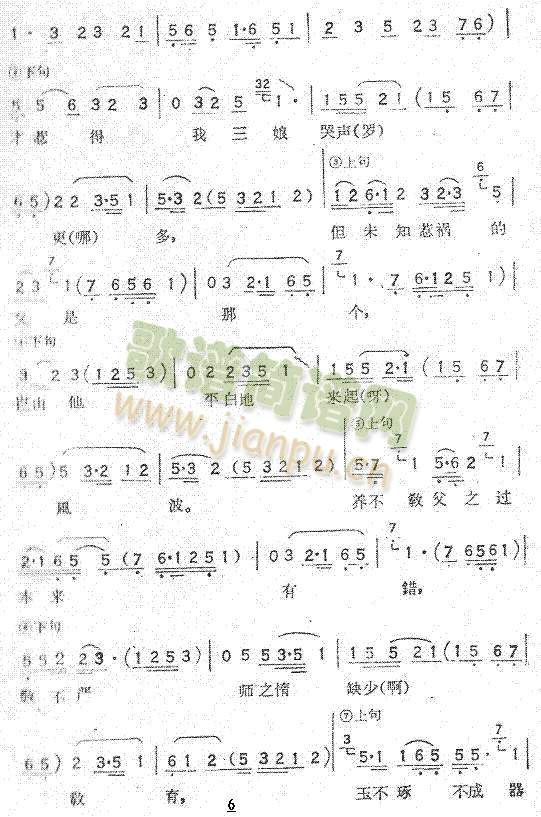 1 · 3 23 21 | 565 1·651 | 2 3 5 23 76) |
②下句
5 5 6 32 3 | 0 32 5 32 1 · | 155 21 (15 67 |
才惹 得 我 三 娘 哭声(罗)
③上句
65) 22 3·51 | 5·3 2 (5 321 2) | 126·12 32·3 6 5
更(哪) 多, 但未知惹祸 的
23 7 1 (7 656 1) | 03 2·1 65 | 7 1 · 7 6·125 1) |
又 是 那 个,
下句
3 2 23 (1253) | 02 235 1 | 155 2·1 (15 67 |
岂由 他 平白地 来起(呀)
⑤上句
65) 5 3·2 12 | 5·3 2 (5 321 2) | 5·7 7 1 5·62 7 1
風 波。 养不 敎父之过
2·165 5 (7 6·1251) | 03 2·1 65 | 7 1 · (7 6561) |
本来 有 錯,
下句
552 23 · (1253) | 05 53·5 1 | 15 5 21 (15 67 |
敎不严 师之惰 缺少(啊)
⑦上句
65) 2 3·5 1 | 61 2 (5 321 2) | 3 5·1 165 55· 7 1
敎 育, 玉不琢 不成 器
歌谱简谱网
www.jianpu.cn
6